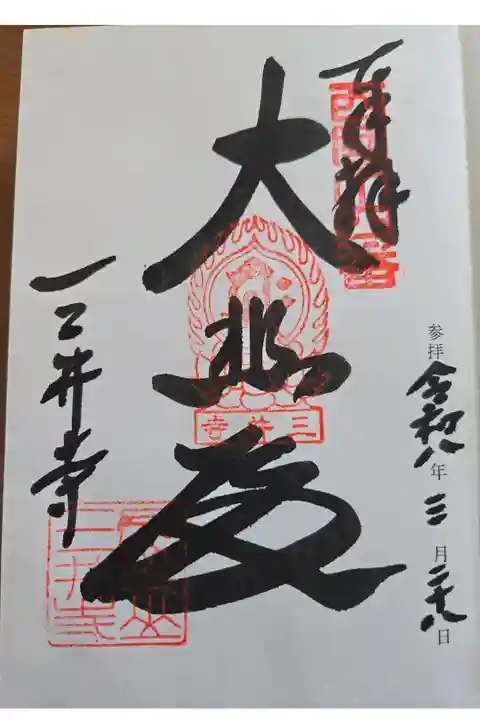 奉拝
西国十四番
参拝 令和八年三月二十八日
大悲殿
三井寺
三井寺
三井寺